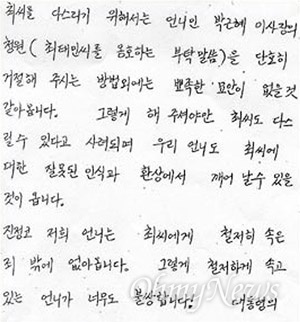 최씨를 다스리기 위해서는 언니인 박근혜 이사장의
청원( 최태민씨를 옹호하는 부탁말씀)을 단호히
거절해 주시는 방법외에는 뾰족한 묘안이 없을것
같아옵니다. 그렇게 해 주셔야만 최씨도 다스
릴수 있다고 사려되며 우리 언니도 최씨에
대한 잘못된 인식과 환상에서 깨어 날수 있을
것이 옵니다.
진정코 저희 언니는 최씨에게 철저히 속은
죄 밖에 없아옵니다. 그렇게 철저하게 속고
있는 언니가 너무도 불쌍합니다! 대통령의
OhmyNews